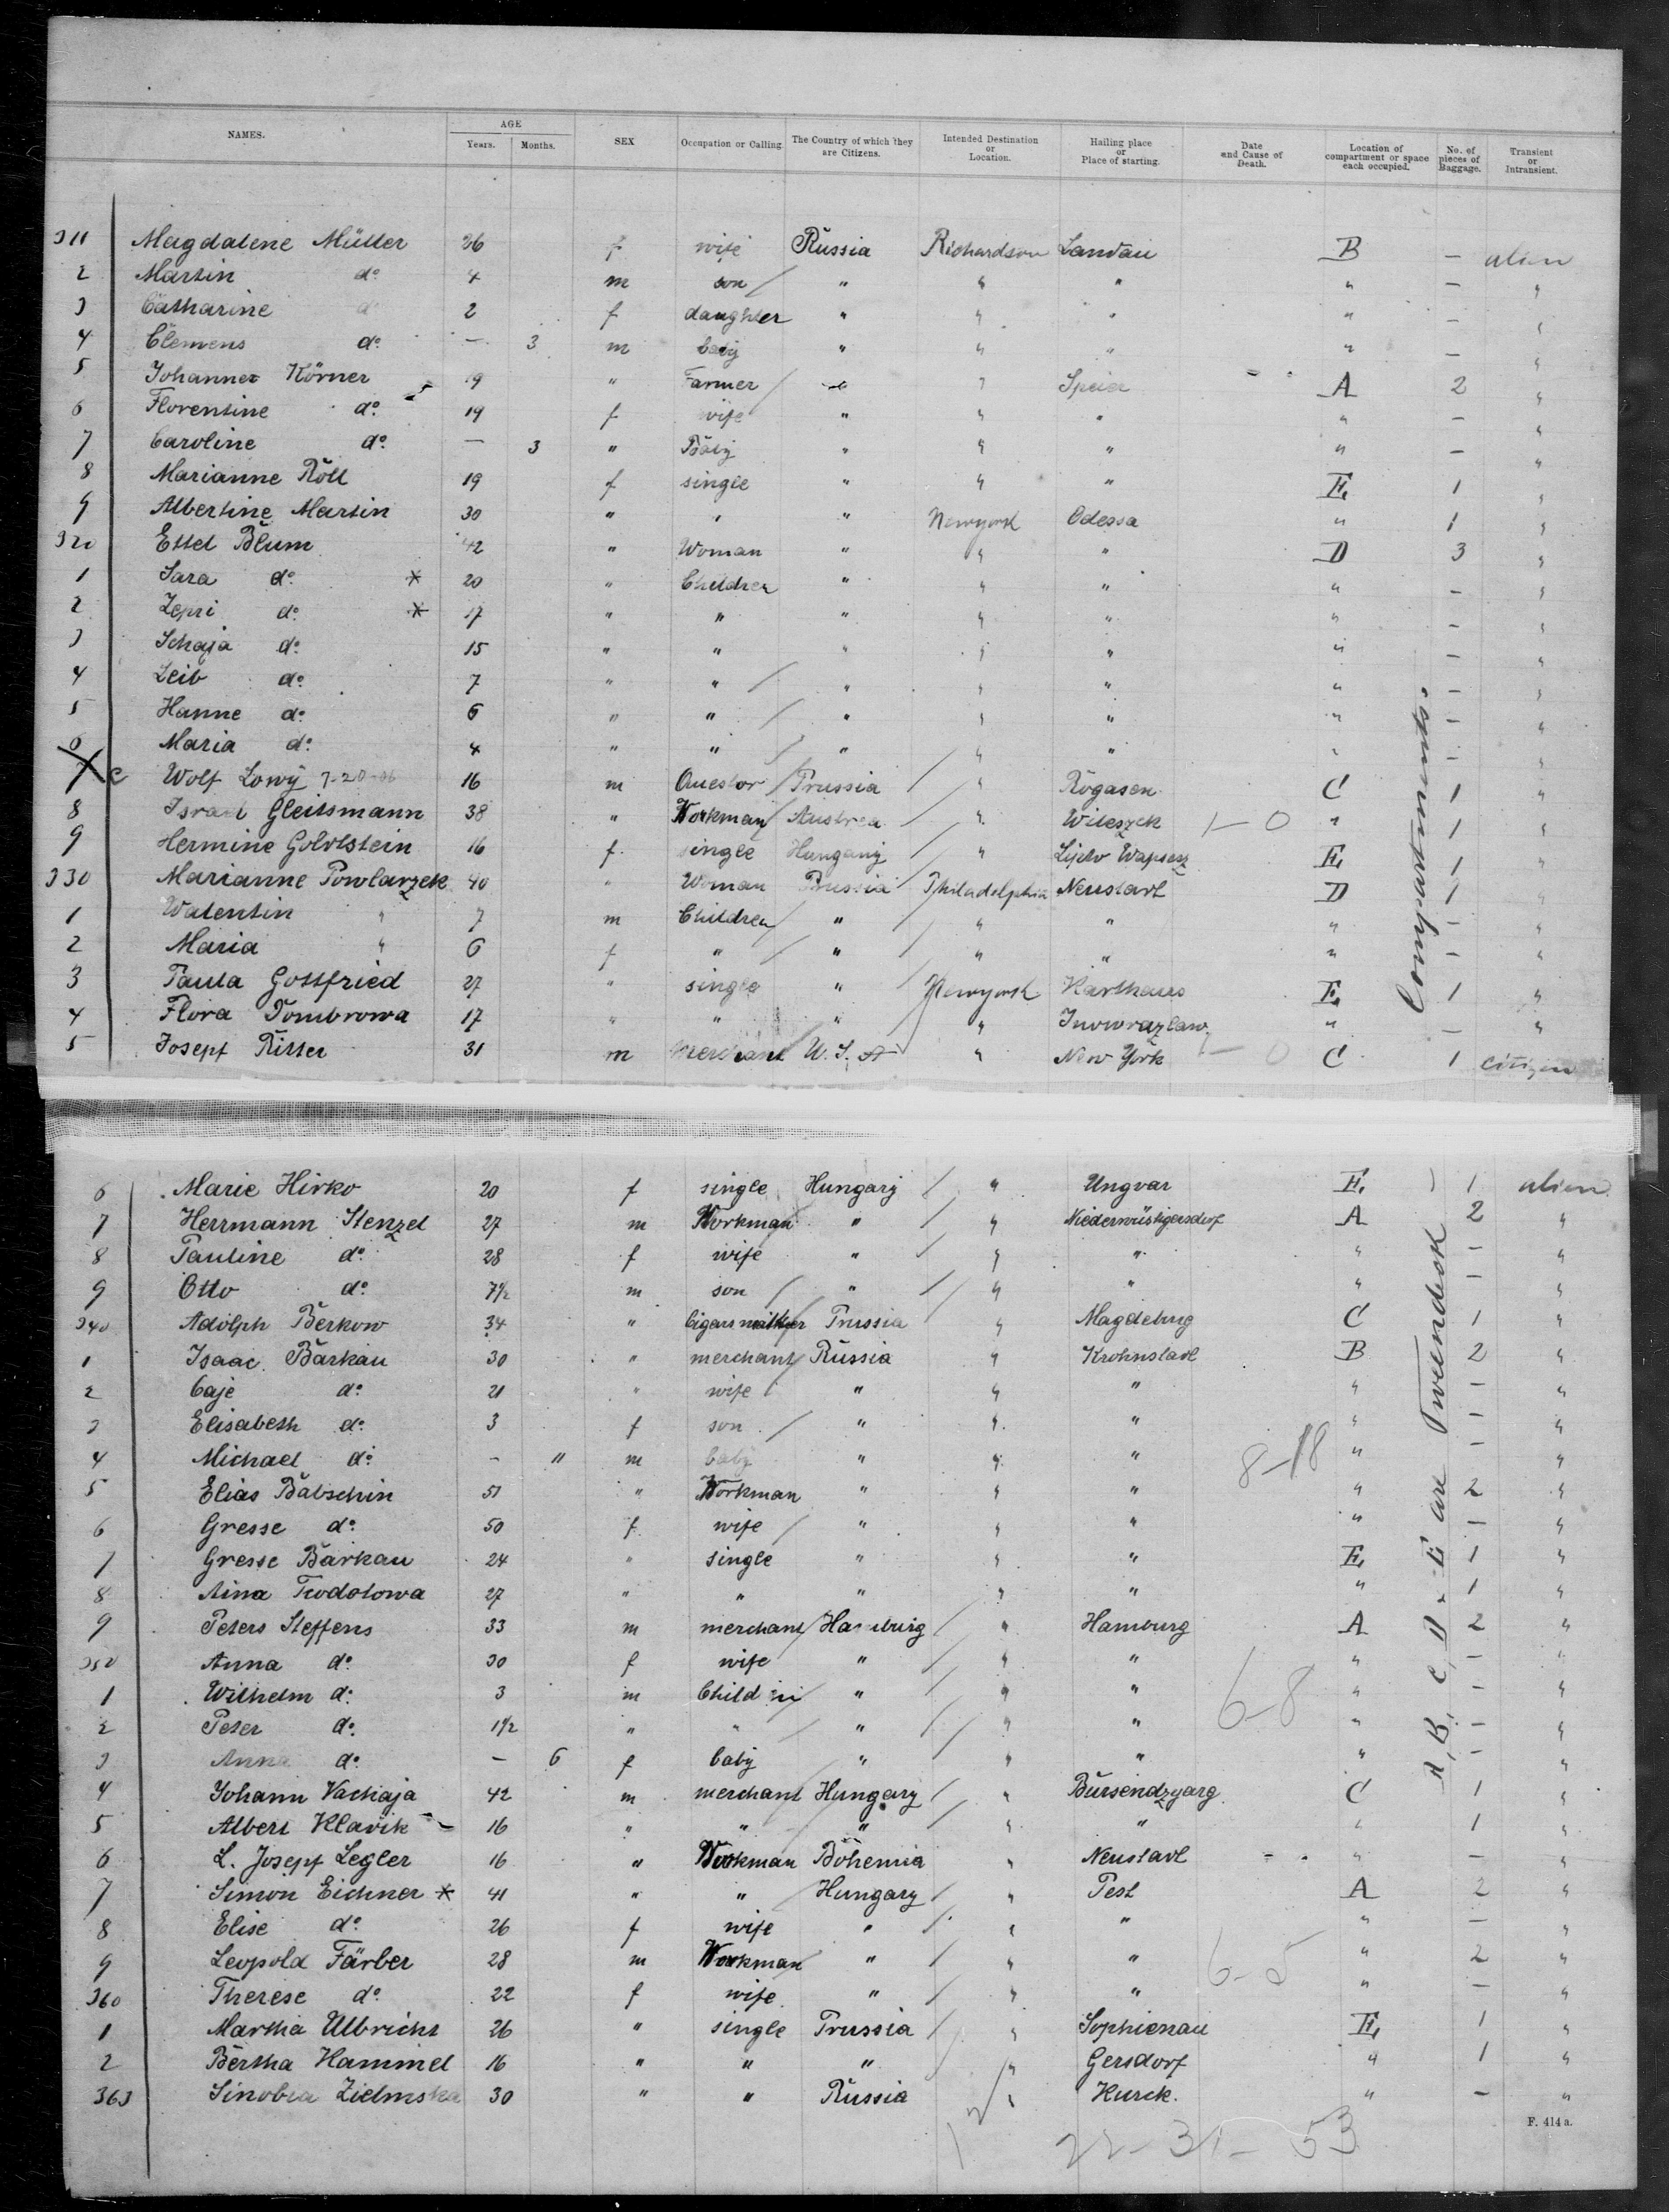 NAMES. AGE Years. Months. SEX Occupation or Calling. The Country of which they are Citizens. Intended Destination or Location. Hailing place or Place of starting. Date and Cause of Death. Location of compartment or space each occupied. No. of pieces of Baggage. Transient or Intransient.
311 Magdalene Müller 26 f wife Russia Richardson Landau B — alien
2 Martin do 4 m son / " " " " — "
3 Catharine do 2 f daughter " " " " — "
4 Clemens do — 3 m baby " " " " — "
5 Johannes Körner 19 " Farmer / " " Speier A 2 "
6 Florentine do 19 f wife " " " " — "
7 Caroline do — 3 " Baby " " " " — "
8 Marianne Röll 19 f single " " " E 1 "
9 Albertine Martin 30 " " " Newyork Odessa " 1 "
320 Ettel Blum 42 " Woman " " " D 3 "
1 Sara do * 20 " Children " " " " — "
2 Zepri do * 17 " " " " " " — "
3 Schaja do 15 " " " " " " — "
4 Leib do 7 " " / " " " " — "
5 Hanne do 6 " " / " " " " — "
6 Maria do 4 " " / " / " " " — "
7 c Wolf Lowy 7-20-06 16 m Questor / Prussia / " Rogasen C 1 "
8 Israel Gleitsmann 38 " Workman / Austrea / " Witeszek 1-0 " 1 "
9 Hermine Goldstein 16 f single Hungary / " Lipto E 1 "
330 Marianne Powlarzek 40 " Woman Prussia Philadelphia Neustadt D 1 "
1 Walentin " 7 m Children / " / " " " — "
2 Maria " 6 f " / " / " " " — "
3 Paula Gottfried 27 " single " / Newyork Karthaus E 1 "
4 Flora Dombrowa 17 " " " / " Inowrazlaw " — "
5 Josepf Ritter 31 m merchant / U. S. A / " New York 1-0 C 1 citizen
6 Marie Hirko 20 f single Hungary / " Ungvar E 1 alien
7 Herrmann Stenzel 27 m Workman / " / " Niederwüstigersdorf A 2 "
8 Pauline do 28 f wife " / " " " — "
9 Otto do 7 1/2 m son / " / " " " — "
340 Adolph Berkow 34 " Cigarsmaker Prussia " Magdeburg C 1 "
1 Isaac Barkau 30 " merchant / Russia " Krohnstadt B 2 "
2 Caje do 21 " wife " " " " — "
3 Elisabeth do 3 f son / " " " " — "
4 Michael do — " m baby " " " 8-18 " — "
5 Elias Babschin 51 " Workman " " " " 2 "
6 Gresse do 50 f wife / " " " " — "
7 Gresse Barkau 24 " single " " " E 1 "
8 Aina Trodolowa 27 " " " " " " 1 "
9 Peters Steffens 33 m merchant / Hamburg / " Hamburg A 2 "
350 Anna do 30 f wife " / " " " — "
1 Wilhelm do 3 m Children / " / " " 6-8 " — "
2 Peter do 1 1/2 " " / " / " " " — "
3 Anna do — 6 f baby " / " " " — "
4 Johann Vachaja 42 m merchant Hungary / " Bursendzyarg C 1 "
5 Albert Klavik 16 " " " " " " 1 "
6 L. Josepf Legler 16 " Workman Bohemia " Neustadt " — "
7 Simon Eichner * 41 " " / Hungary / " Pest A 2 "
8 Elise do 26 f wife " / " " " — "
9 Leopold Färber 28 m Workman / " / " " 6-5 " 2 "
360 Therese do 22 f wife " / " " " — "
1 Martha Ulbricht 26 " single Prussia / " Sophienau E 1 "
2 Bertha Hammel 16 " " " / " Gersdorf " 1 "
363 Sinobia Zielmska 30 " " Russia " Kurck. " — "
A, B, C, D & E are Tweendeck Compartments.
22-31-53
F. 414 a.